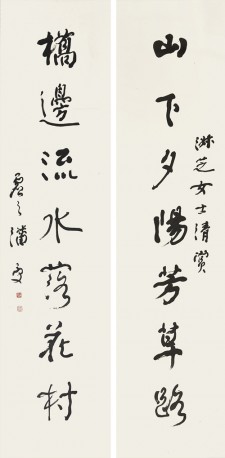 山下夕陽芳草路
淋芝女士清賞
橋邊流水落花村
虚之潘受